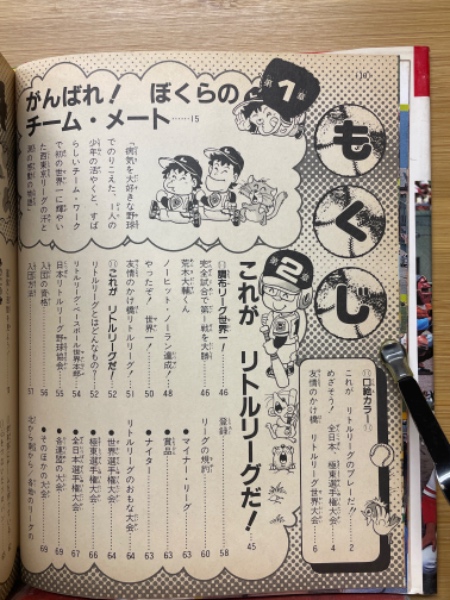 (10)
もくじ
口絵カラー
これが リトルリーグのプレーだ!! 2
めざそう! 全日本、極東選手権大会 4
友情のかけ橋 リトルリーグ世界大会 6
第1章
がんばれ! ぼくらの
チーム・メート……15
「病気を大好きな野球
でのりこえた、一人の
少年の活やくと、すば
らしいチーム・ワーク
で初の世界一に輝やい
た西東京リーグの汗と
第2章
これが リトルリーグだ!……45
調布リーグ世界一! 46
完全試合で第1戦を大勝 46
荒木大輔くん
ノーヒット・ノーラン達成! 48
やったぞ! 世界一! 50
友情のかけ橋リトルリーグ! 51
これが リトルリーグだ! 52
リトルリーグとはどんなもの? 52
リトルリーグ・ベースボール世界本部 54
日本リトルリーグ野球協会 55
入団の資格 56
入団方法 57
登録 58
リーグの規約 60
●マイナー・リーグ 63
●賞品 63
●ナイター 63
リトルリーグのおもな大会 64
●世界選手権大会 64
●極東選手権大会 66
●全日本選手権大会 67
●各連盟の大会 69
●そのほかの大会 69